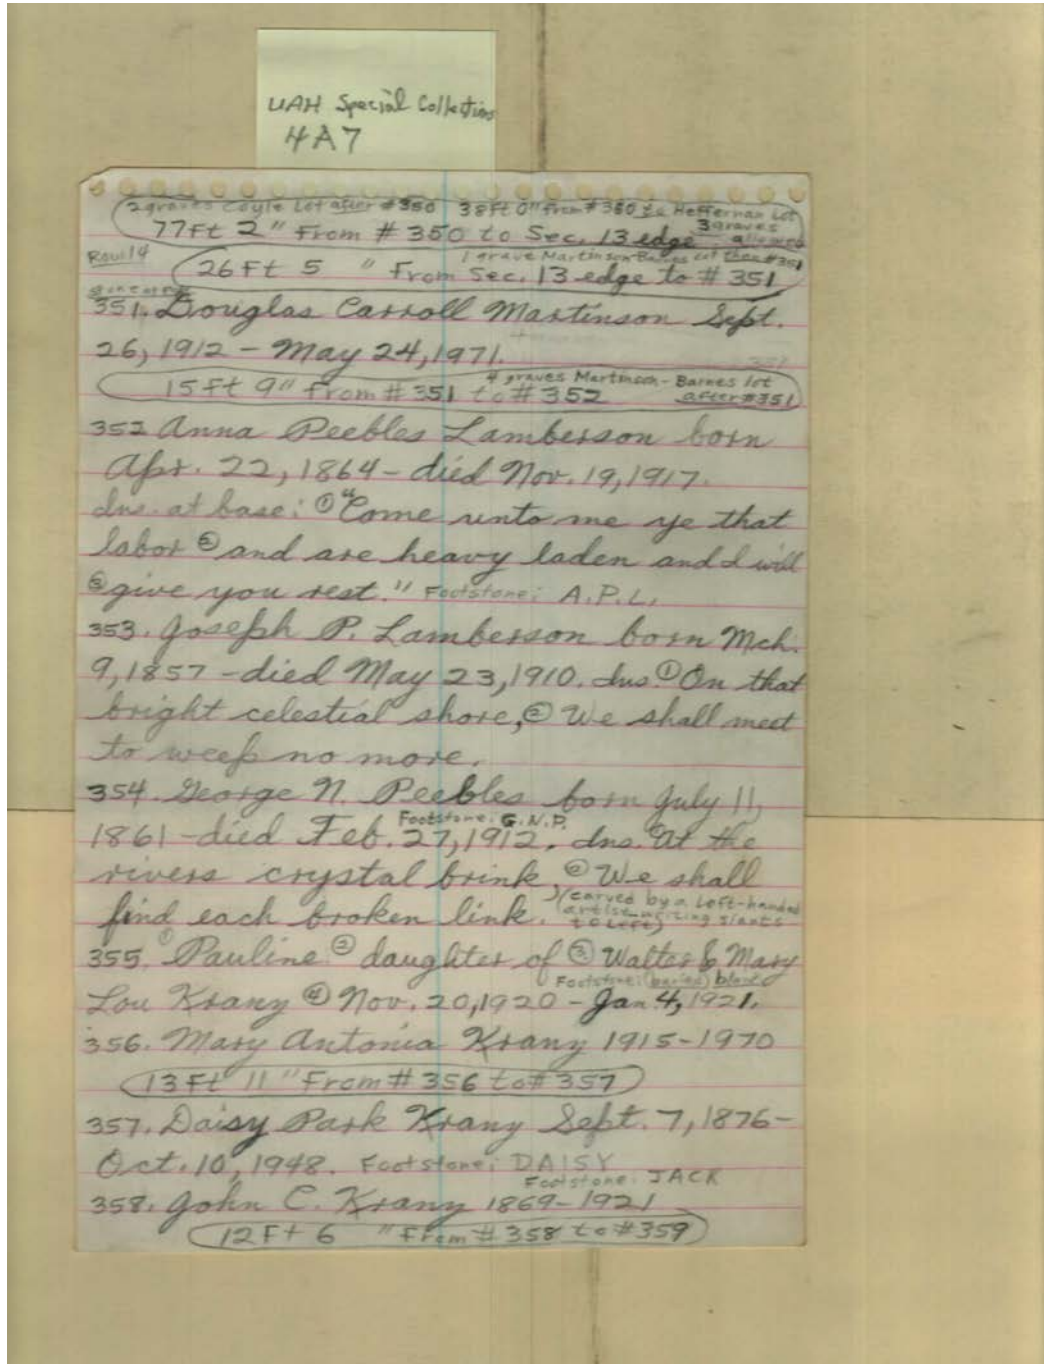 UAH Special Collections
4A7
2 graves Coyle Lot after #350 38Ft 0" from #350 to Heffernan Lot
3 graves
77Ft 2" From #350 to Sec. 13 edge allowed
Row 14
1 grave Martinson-Barnes Lot then #351
26Ft 5 " From Sec. 13 edge to #351
351. Douglas Carroll Martinson Sept.
26, 1912 - May 24, 1971.
4 graves Martinson-Barnes lot
15Ft 9" From #351 to #352 after #351
352 Anna Peebles Lamberson born
Apr. 22, 1864 - died Nov. 19, 1917.
Ins. at base: ① "Come unto me ye that
labor ② and are heavy laden and I will
③ give you rest." Footstone: A.P.L.
353. Joseph P. Lamberson born Mch.
9, 1857 - died May 23, 1910. Ins. ① On that
bright celestial shore, ② We shall meet
to weep no more.
354. George N. Peebles born July 11,
Footstone: G.N.P.
1861 - died Feb. 27, 1912. Ins. ① At the
rivers crystal brink, ② We shall
find each broken link. (carved by a Left-handed
artist-writing slants
to Left)
355. ① Pauline ② daughter of ③ Walter & Mary
Footstone: (buried) blank
Lou Krany ④ Nov. 20, 1920 - Jan 4, 1921.
356. Mary Antonia Krany 1915-1970
13Ft 11" From #356 to #357
357. Daisy Park Krany Sept. 7, 1876-
Oct. 10, 1948. Footstone: DAISY
Footstone: JACK
358. John C. Krany 1869-1921
12Ft 6 " From #358 to #359